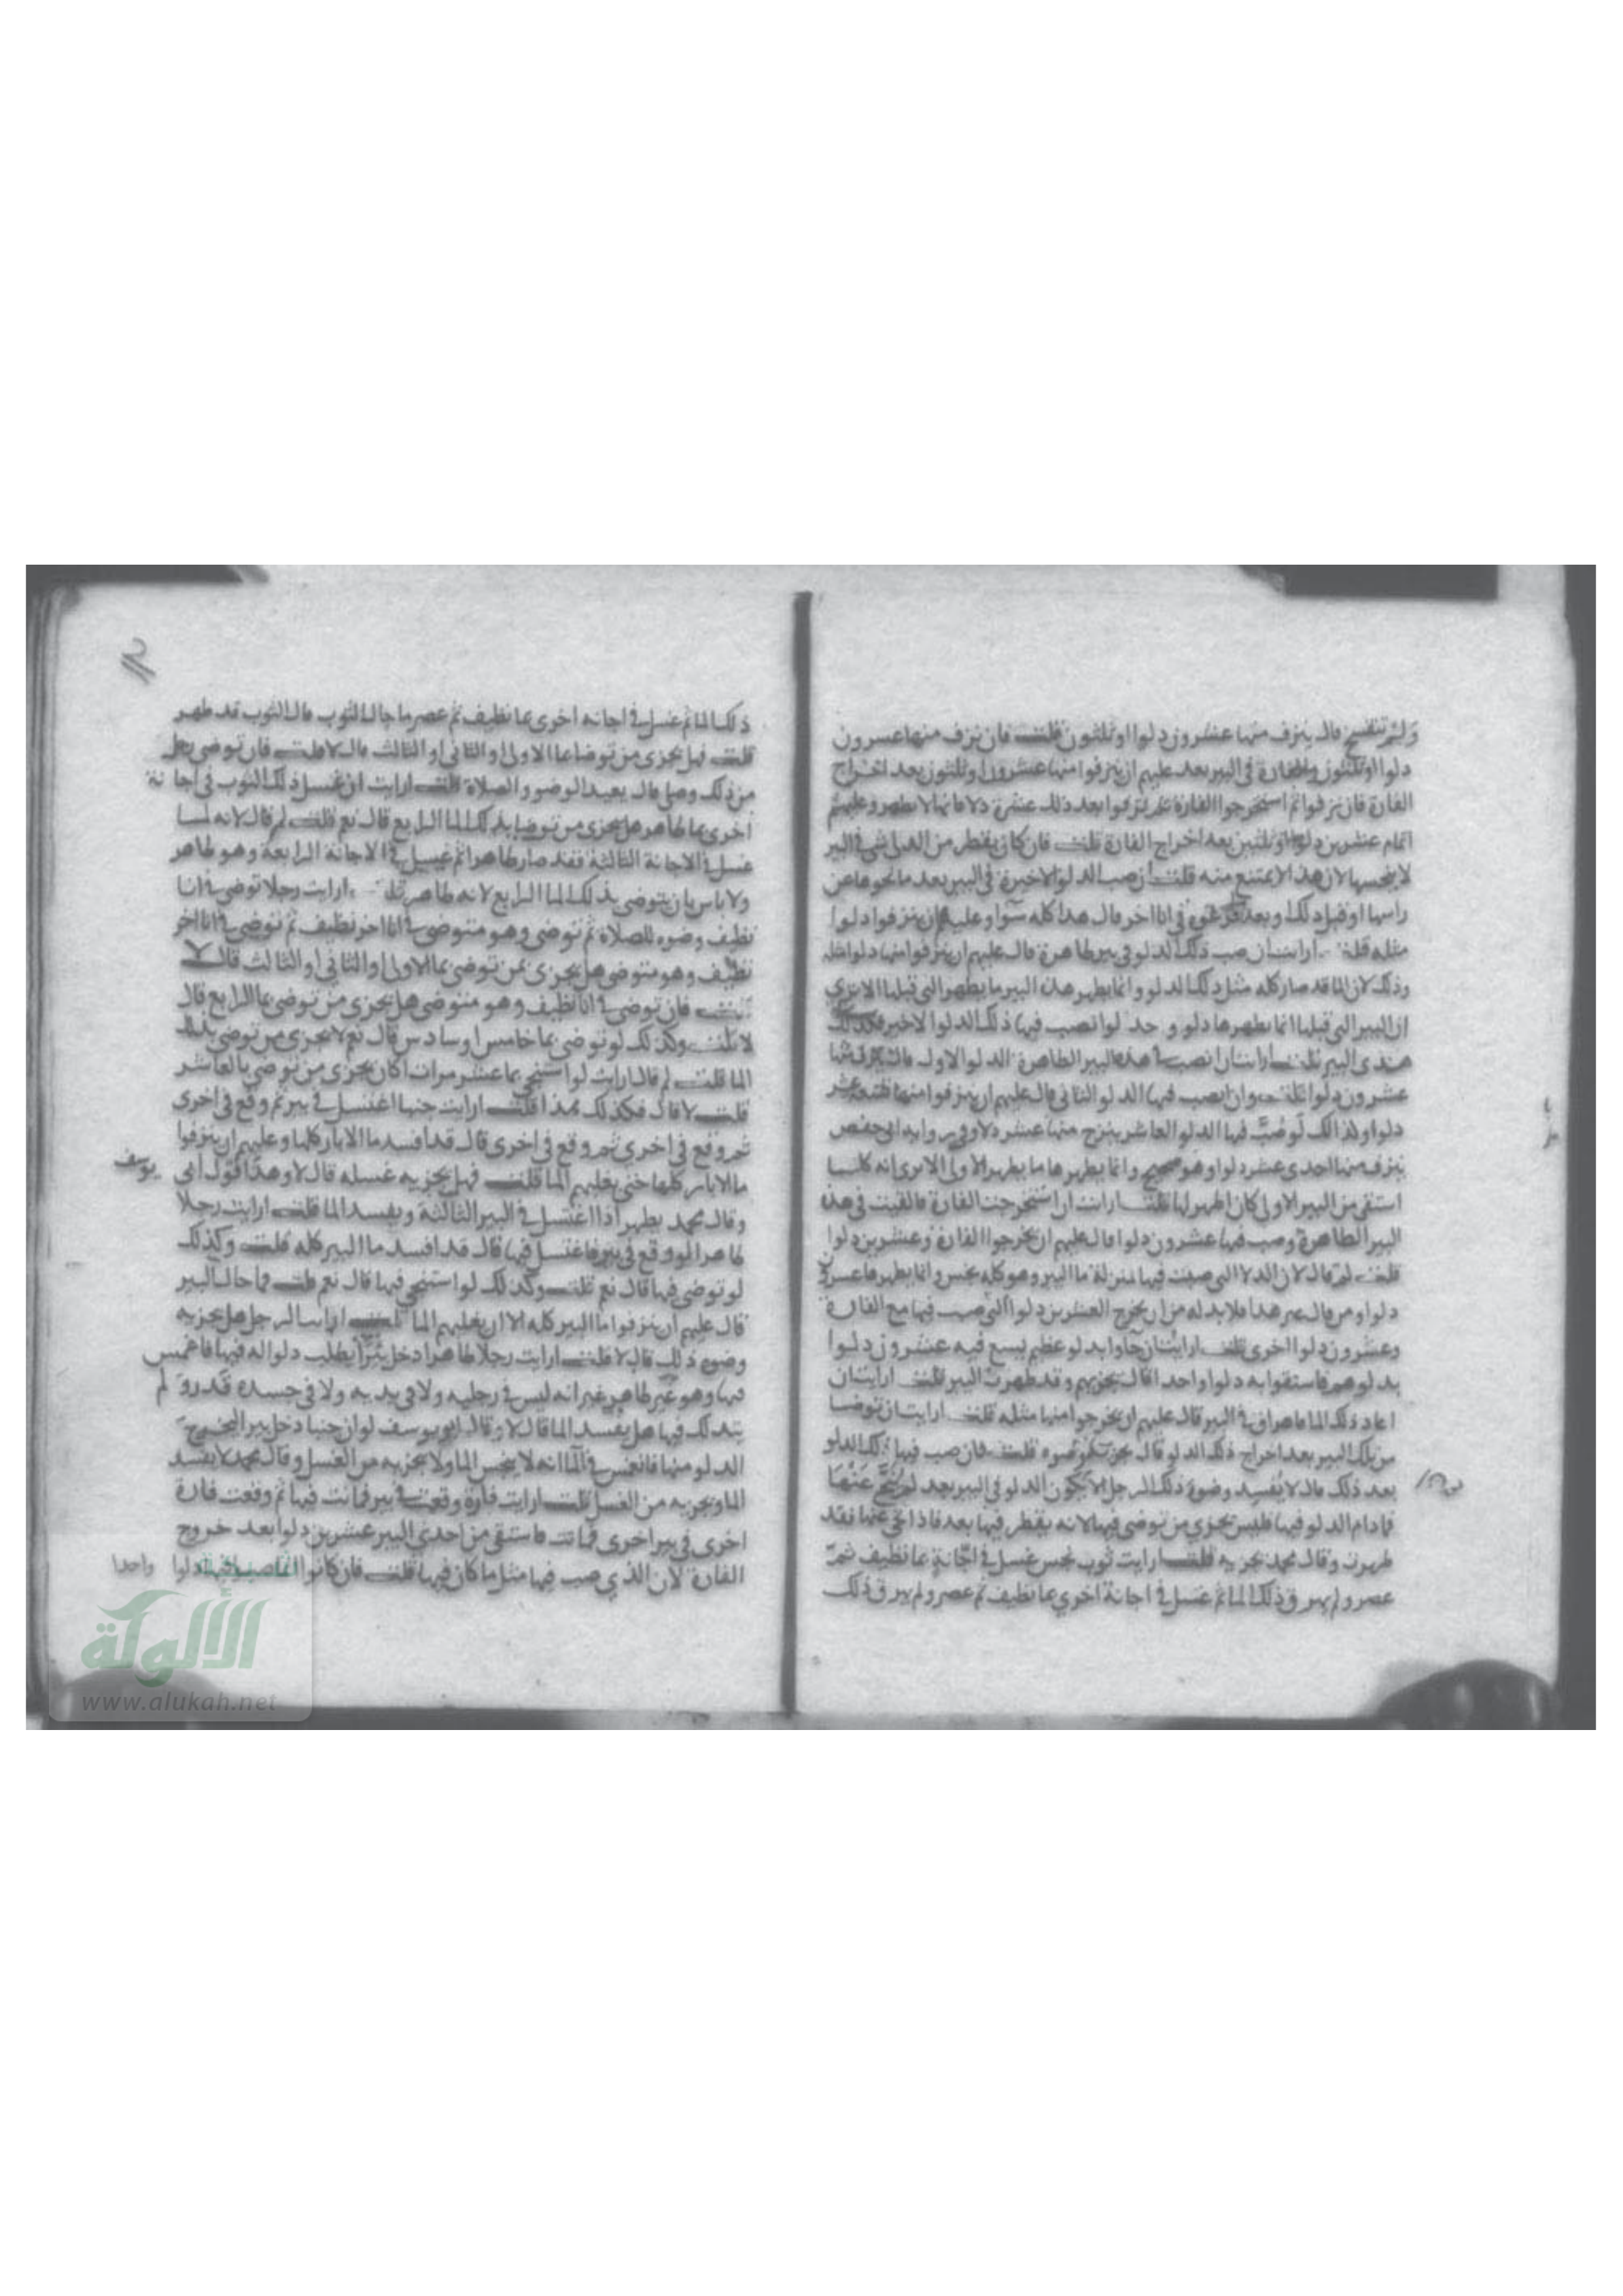 ولم تتفسخ قال ينزف منها عشرون دلوا او ثلثون قلت فان نزف منها عسرون
دلوا او ثلثون والفارة فى البير بعد عليهم ان ينزفوا منها عشرون او ثلثون بعد اخراج
الفارة فان نزفوا ثم استخرجوا الفارة ثم نزفوا بعد ذلك عشرة دلا فانها لا تطهر وعليهم
اتمام عشرين دلوا او ثلثين بعد اخراج الفارة قلت فان كان يقطر من الدلو شى فى البير
لا ينجسها لان هذا لا يمتنع منه قلت ان صب الدلو الاخيرة فى البير بعد ما نحوها عن
راسها او قبل ذلك وبعد فى انا اخر قال هذا كله سوآ وعليهم ان ينزفوا دلوا
مثله قلت ارايت ان صب ذلك الدلو فى بير طاهرة قال عليهم ان ينزفوا منها دلوا مثله
وذلك لان الما قد صار كله مثل ذلك الدلو وانما يطهر هذه البير ما يطهر التى قبلها الا ترى
ان البير التى قبلها انما يطهرها دلو واحد لو انصب فيها ذلك الدلو الاخير فكذلك
هذى البير قلت ارايت ان انصب فى هذه البير الطاهرة الدلو الاول قال ينزف منها
عشرون دلوا قلت وان انصب فيها الدلو الثانى قال عليهم ان ينزفوا منها تسعة عشر
دلوا وكذالك لو صُبَّ فيها الدلو العاشر ينزح منها عشر دلا وفى رواية ابى حفص
ينزف منها احدى عشر دلوا وهو صحيح وانما يطهرها ما يطهر الاولى الا ترى انه كلما
استقى من البير الاولى كان اطهر لها قلت ارايت ان استخرجت الفارة فالقيت فى هذه
البير الطاهرة وصب فيها عشرون دلوا قال عليهم ان يخرجوا الفارة وعشرين دلوا
قلت لم قال لان الدلا التى صبت فيها بمنزلة ما البير وهو كله نجس وانما يطهرها عسرون
دلوا ومن قال غير هذا فلا بد له من ان يخرج العشرين دلوا التى صب فيها مع الفارة
وعشرون دلوا اخرى قلت ارايت ان جآوا بدلو عظيم يسع فيه عشرون دلوا
بدلوهم فاستقوا به دلوا واحدا قال يجزيهم وقد طهرت البير قلت ارايت ان
اعاد ذلك الما فاهراق فى البير قال عليهم ان يخرجوا منها مثله قلت ارايت ان توضا
من تلك البير بعد اخراج ذلك الدلو قال يجزيه وضوه قلت فان صب فيها ذلك الدلو
بعد ذلك قال لا يُفسد وضوء ذلك الرجل الا يكون الدلو فى البير بعد لم يُنَحَّ عَنْهَا
فما دام الدلو فيها فليس يجزي من توضى فيها لانه يقطر فيها بعد فاذا نحى عنها فقد
طهرت وقال محمد يجزيه قلت ارايت ثوب نجس غسل فى اجّانةٍ بما نظيف ثمّ
عصر ولم يهرق ذلك الما ثم غسل فى اجانة اخري بما نظيف ثم عصر ولم يهرق ذلك
ذلك الما ثم غسل فى اجانه اخرى بما نظيف ثم عصر ما حال الثوب قال الثوب قد طهر
قلت فهل يجزى من توضا بما الاولى او الثانى او الثالث قال لا قلت فان توضى رجل
من ذلك وصلى قال يعيد الوضو والصلاة قلت ارايت ان غسل ذلك الثوب فى اجانة
اخرى بما طاهر هل يجزى من توضا بذلك الما الرابع قال نعم قلت لم قال لانه لما
غسل فى الاجانة الثالثة فقد صار طاهرا ثم غسل فى الاجانة الرابعة وهو طاهر
ولا باس بان يتوضى بذلك الما الرابع لانه طاهر قلت ارايت رجلا توضى فى انا
نظيف وضوه للصلاة ثم توضى وهو متوضى فى انا اخر نظيف ثم توضى فى انا اخر
نظيف وهو متوضى هل يجزى من توضى بما الاولى او الثانى او الثالث قال لا
قلت فان توضى فى انا نظيف وهو متوضى هل يجزى من توضى بما الرابع قال
لا قلت وكذلك لو توضى بما خامس او سادس قال نعم لا يجزى من توضى بذلك
الما قلت لم قال ارايت لو استنجى بما عشر مرات اكان يجزى من توضى بالعاشر
قلت لا قال فكذلك هذا قلت ارايت جنبا اغتسل فى بير ثم وقع فى اخرى
ثم وقع فى اخرى ثم وقع فى اخرى قال قد افسد ما الابار كلها وعليهم ان ينزفوا
ما الابار كلها حتى يغلبهم الما قلت فهل يجزيه غسله قال لا وهذا قول ابى يوسف
وقال محمد يطهر اذا اغتسل فى البير الثالثة ويفسد الما قلت ارايت رجلا
طاهرا لو وقع فى بير فاغتسل فيها قال قد افسد ما البير كله قلت وكذلك
لو توضى فيها قال نعم قلت وكذلك لو استنجى فيها قال نعم قلت فما حال البير
قال عليهم ان ينزفوا ما البير كله الا ان يغلبهم الما قلت ارايت الرجل هل يجزيه
وضوه ذلك قال لا قلت ارايت رجلا طاهرا دخل بئرا يطلب دلوا له فيها فاغمس
فيها وهو غير طاهر غير انه ليس فى رجليه ولا فى يديه ولا فى جسده قذر ولم
يتدلك فيها هل يفسد الما قال لا وقال ابو يوسف لو ان جنبا دخل بير ليخرج
الدلو منها فانغمس فى المآ انه لا ينجس الما ولا يجزيه من الغسل وقال محمد لا يفسد
الما ويجزيه من الغسل قلت ارايت فارة وقعت فى بير فماتت فيها ثم وقعت فارة
اخرى فى بير اخرى فماتت فاستقى من احدى البير عشرين دلوا بعد خروج
الفارة لان الذي صب فيها مثل ما كان فيها قلت فان كانوا انما صبوا فيها دلوا واحدا
الألوكة
www.alukah.net